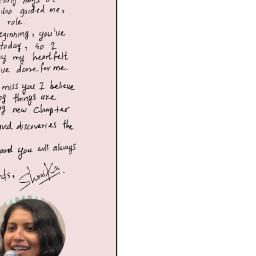 who guided me,
role.
eginning, you've
today, so I
my heartfelt
ve done for me.
miss you I believe
things are
new chapter
and discoveries the
and you will always
ds,